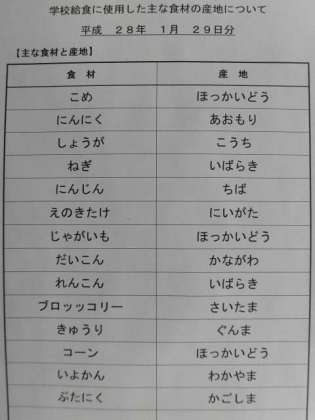 学校給食に使用した主な食材の産地について
平成　２８年　１月　２９日分
【主な食材と産地】
食　材　産　地
こめ　ほっかいどう
にんにく　あおもり
しょうが　こうち
ねぎ　いばらき
にんじん　ちば
えのきたけ　にいがた
じゃがいも　ほっかいどう
だいこん　かながわ
れんこん　いばらき
ブロッッコリー　さいたま
きゅうり　ぐんま
コーン　ほっかいどう
いよかん　わかやま
ぶたにく　かごしま